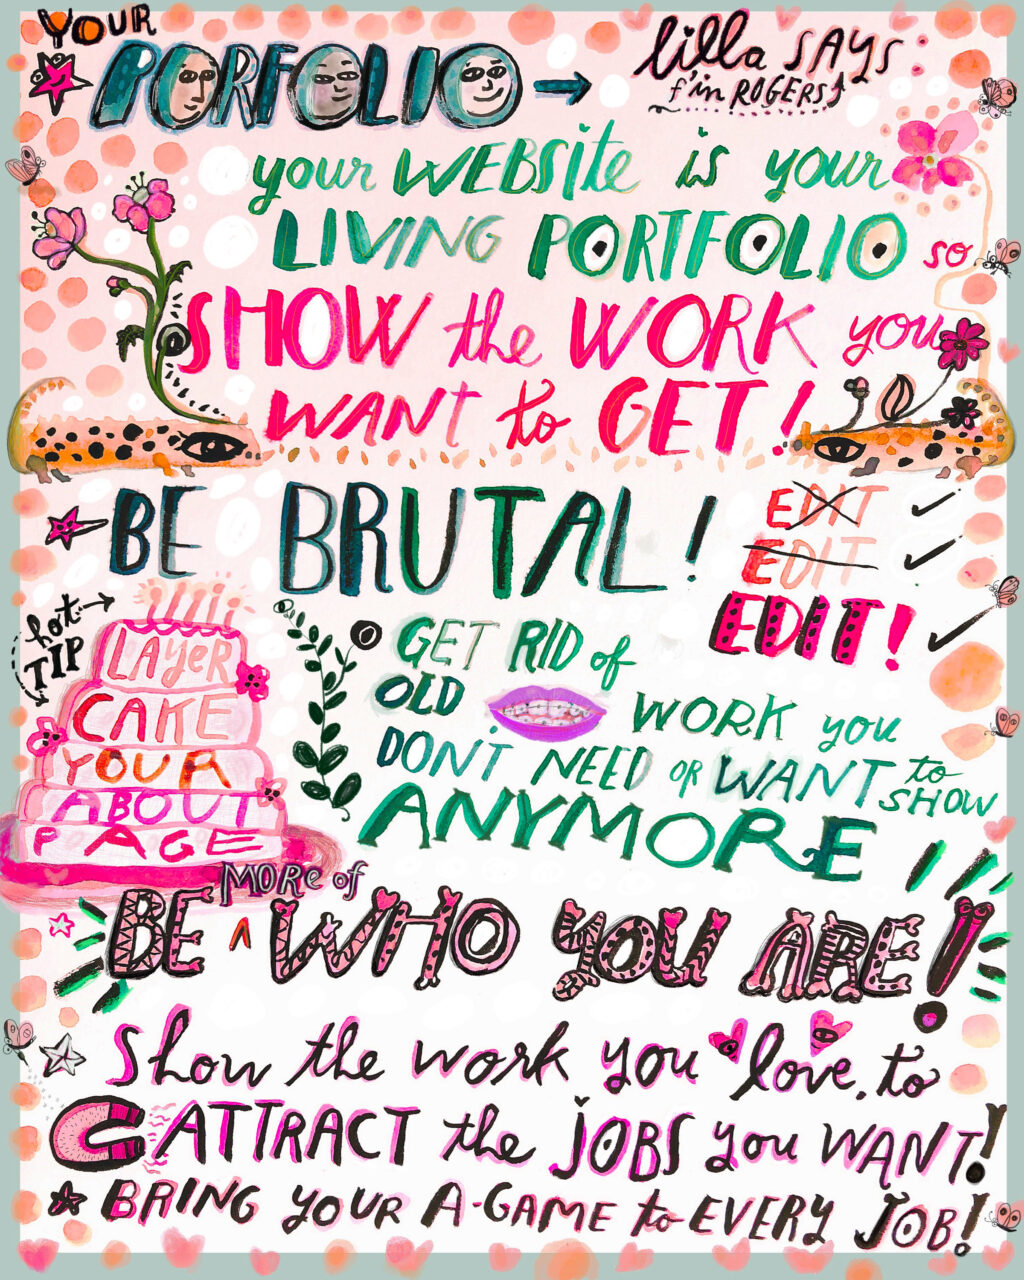 YOUR
PORFOLIO → lilla SAYS
f'in ROGERS
your WEBSite is your
LIVING PORTFOLIO so
SHOW the WORK you
WANT to GET!
BE BRUTAL!
EDIT ✓
EDIT ✓
EDIT! ✓
hot TIP
LAYER
CAKE
YOUR
ABOUT
PAGE
GET RID of
OLD WORK you
DON'T NEED OR WANT to SHOW
ANYMORE
MORE of
BE ^ WHO YOU ARE!
Show the work you love, to
ATTRACT the JOBS you WANT!
BRING YOUR A-GAME to EVERY JOB!